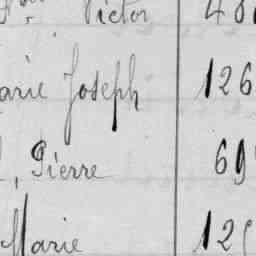 Victor 48
arie Joseph 126
, Pierre 69
Marie 12